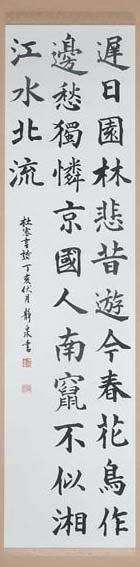 遲日園林悲昔遊今春花鳥作
邊愁獨憐京國人南竄不似湘
江水北流
杜審言詩丁亥伏月靜泉書